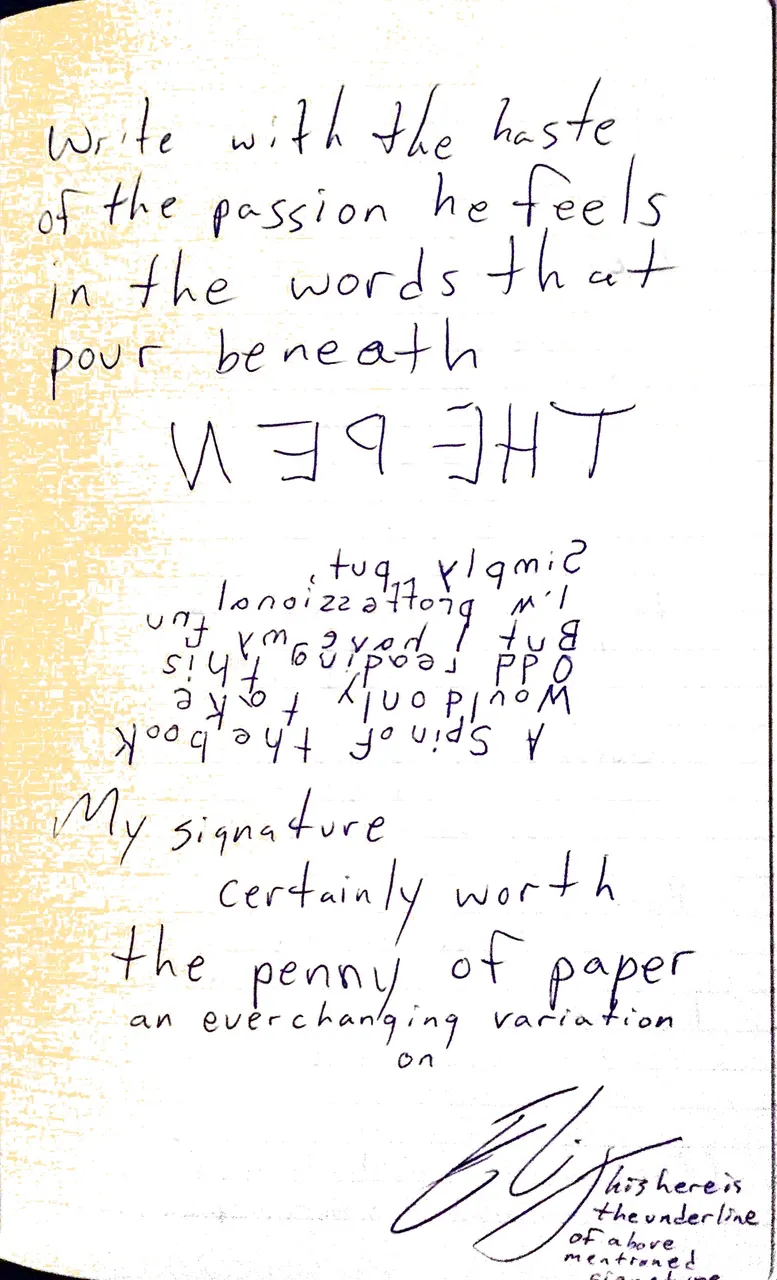 Write with the haste
of the passion he feels
in the words that
pour beneath
THE PEN
A Spin of the book
Would only take
Odd reading this
But I have my fun
I'm professional
Simply put,
My signature
certainly worth
the penny of paper
an everchanging variation
on
Eli
This here is
the underline
of above
mentioned
signature